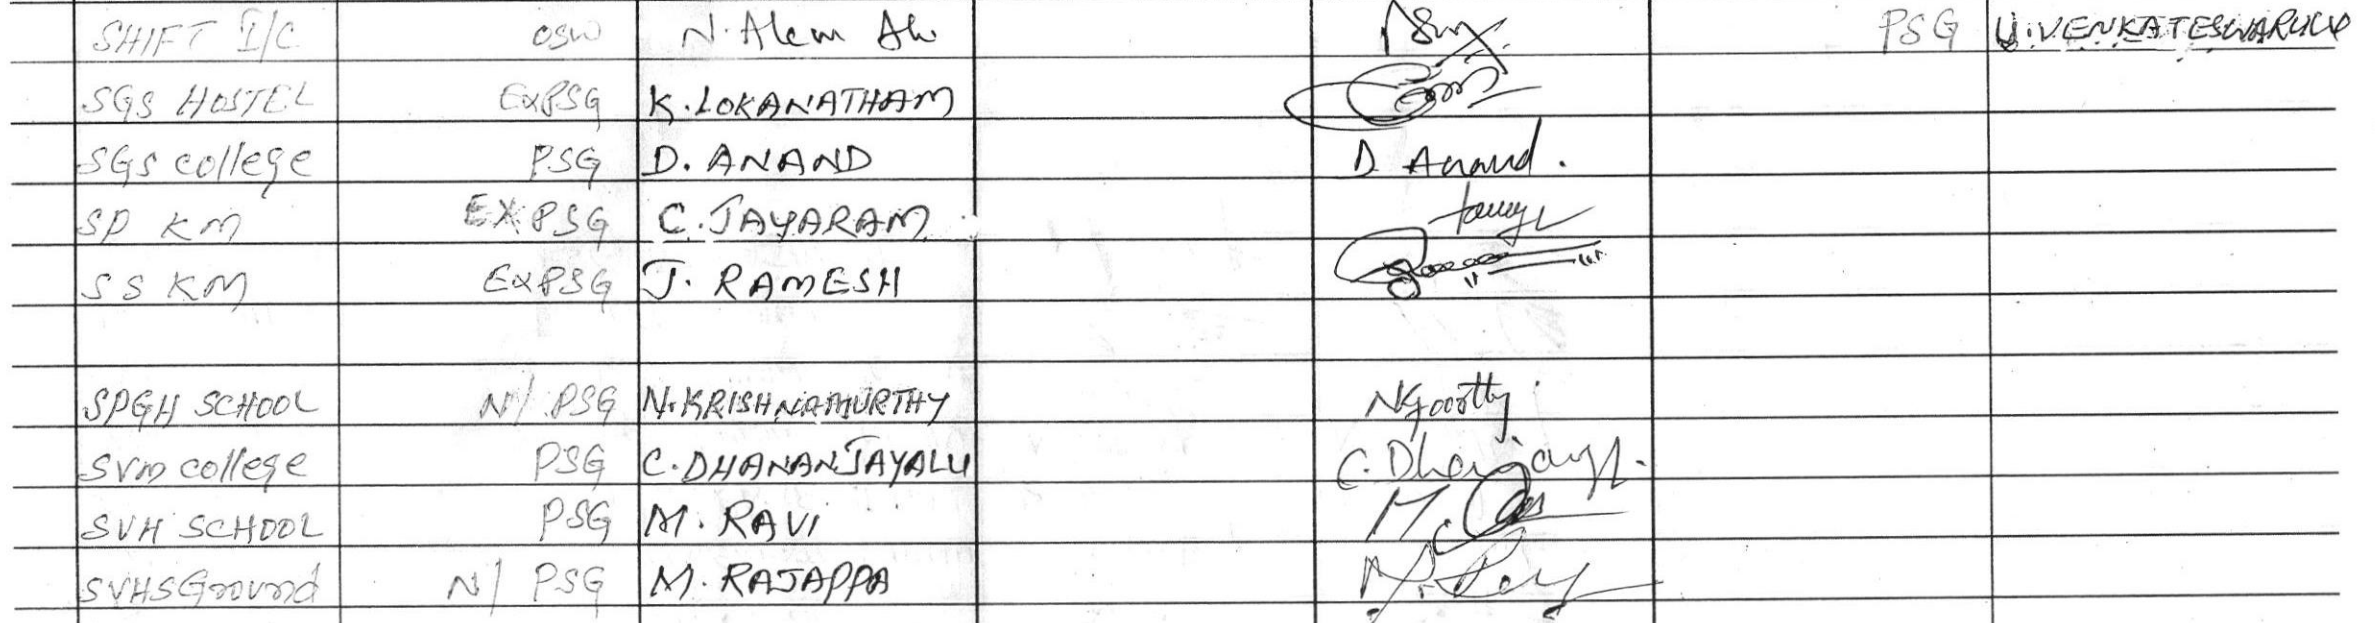 SHIFT I/C OSW N. Alem Ali PSG U. VENKATESWARULU
SGS HOSTEL EXPSG K. LOKANATHAM
SGS College PSG D. ANAND D Anand.
SP KM EXPSG C. JAYARAM
SS KM EXPSG J. RAMESH
SPGH SCHOOL N/ PSG N. KRISHNAMURTHY
SVM College PSG C. DHANANJAYALU
SVH SCHOOL PSG M. RAVI
SVHS Ground N/ PSG M. RAJAPPA